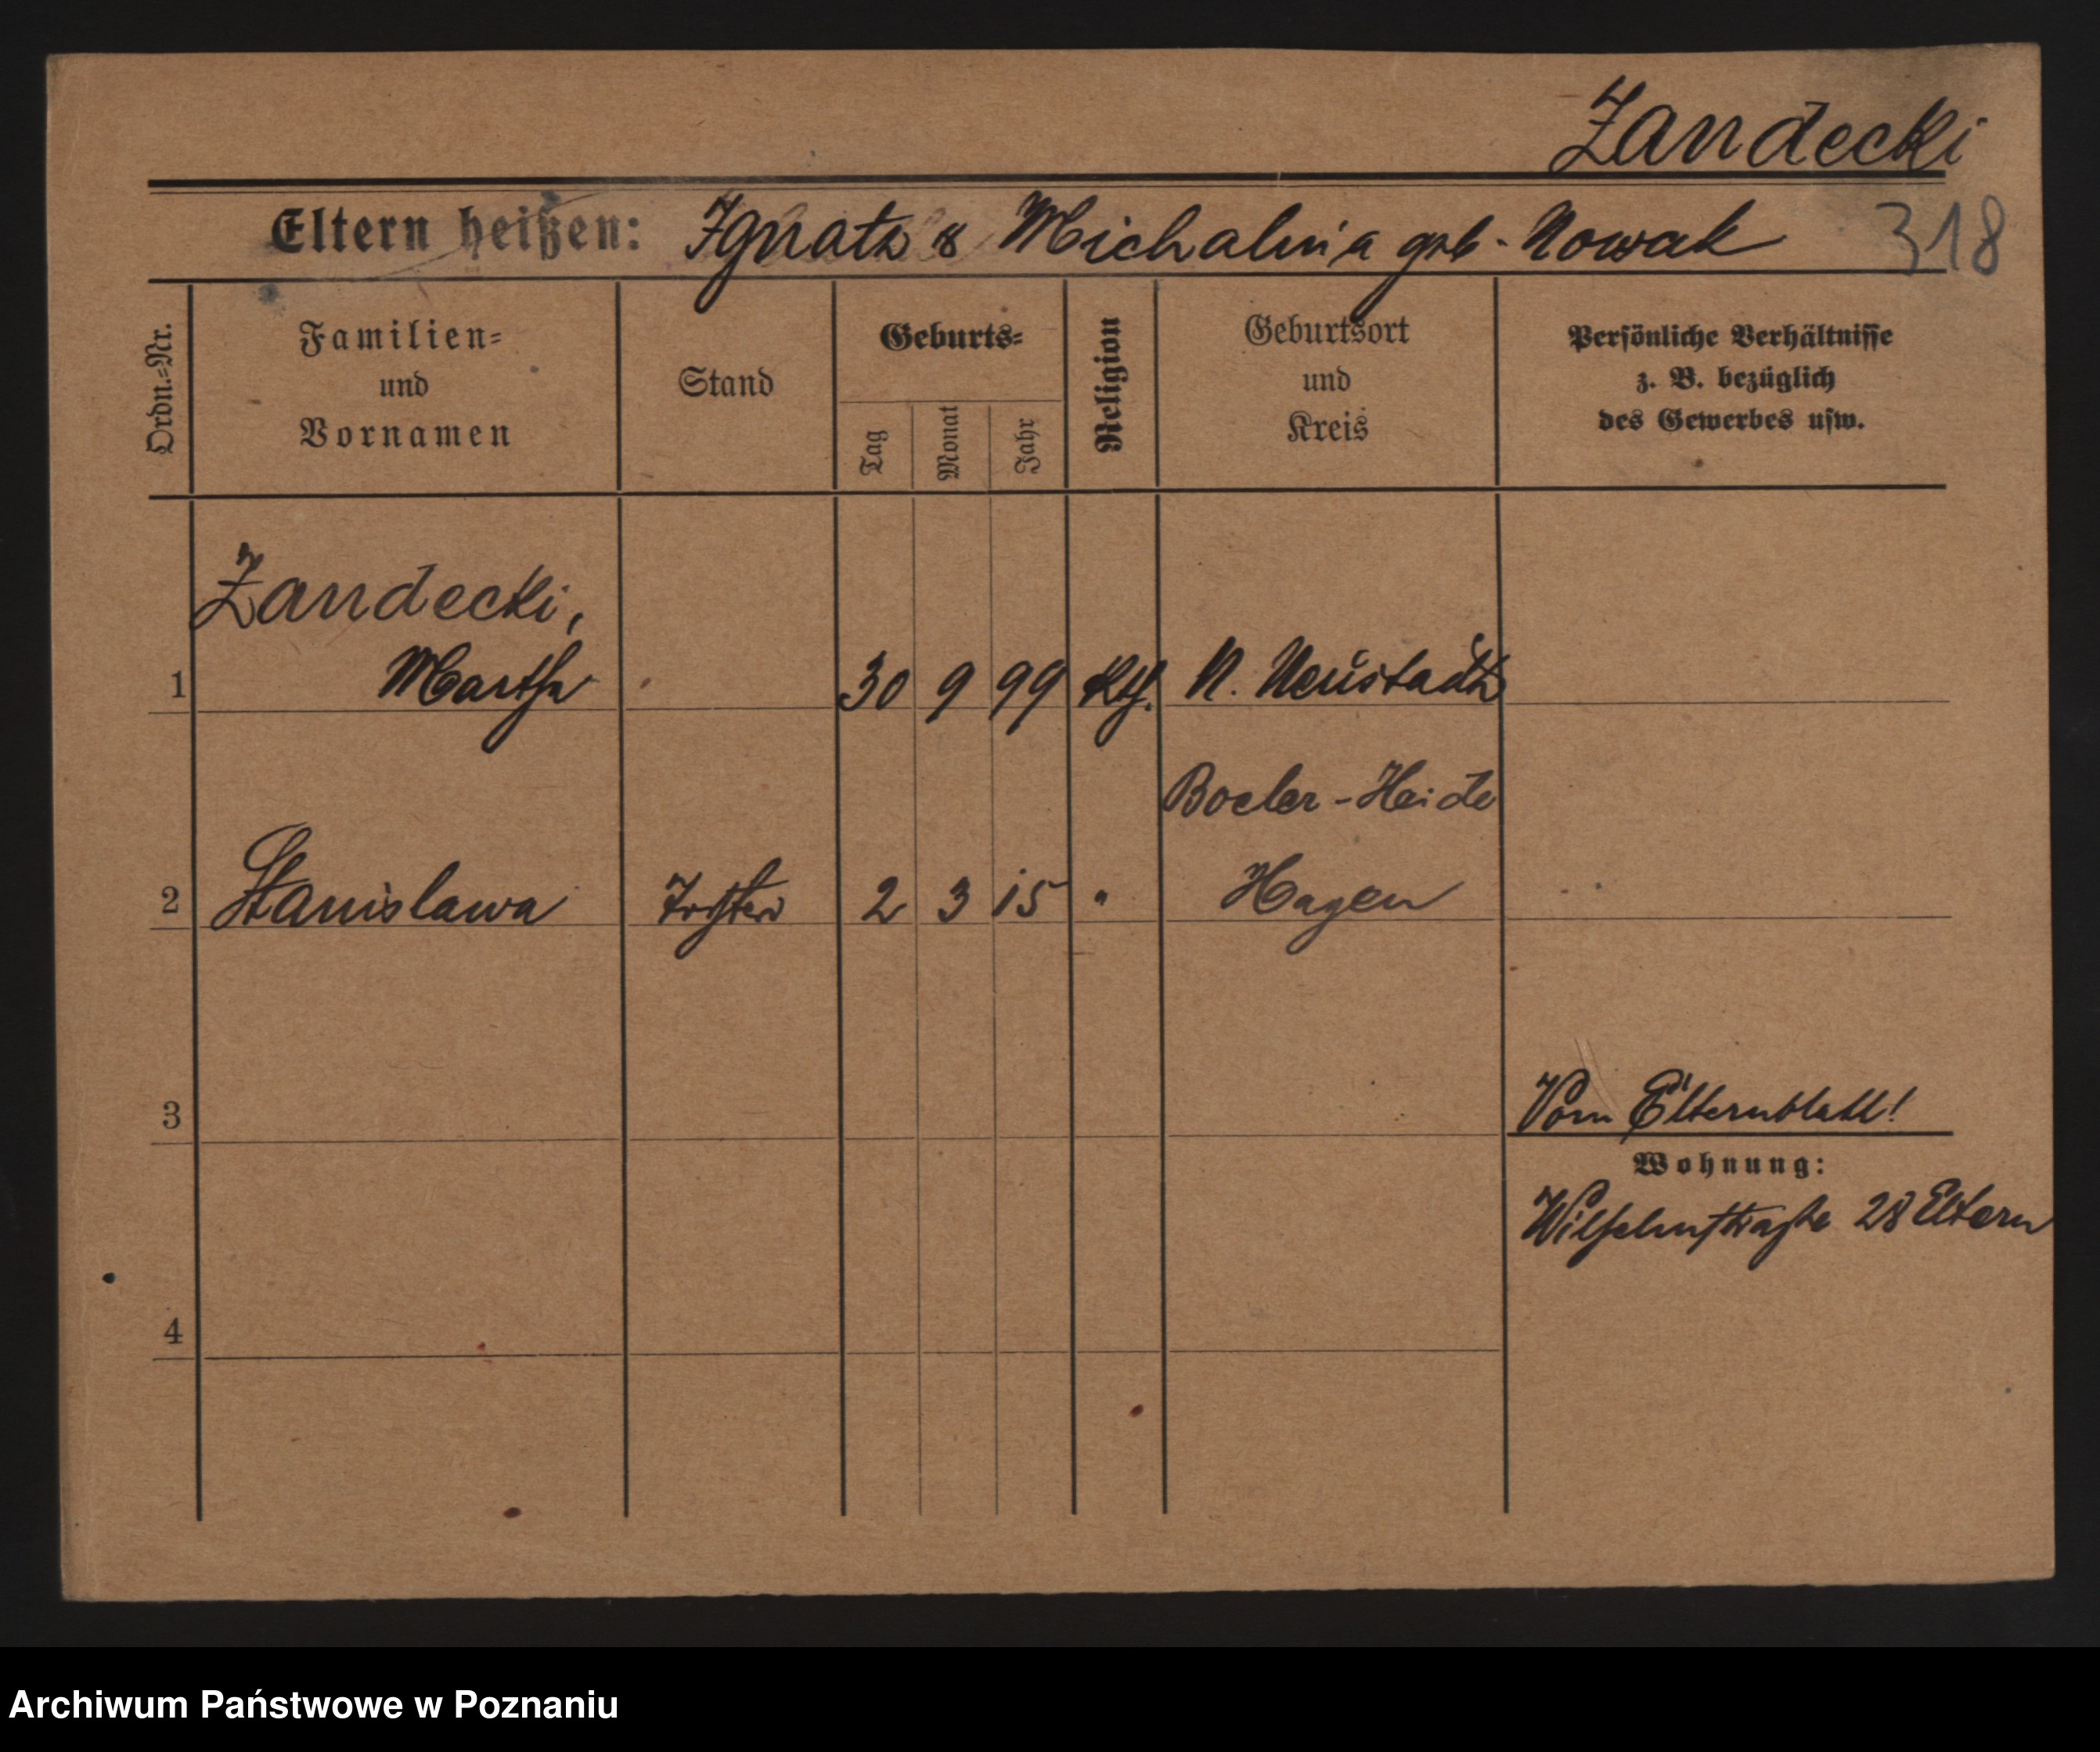 Zandecki
Eltern heißen: Ignatz & Michalina geb. Nowak 318
Ordn.=Nr.
Familien=
und
Vornamen
Stand
Geburts=
Tag
Monat
Jahr
Religion
Geburtsort
und
Kreis
Persönliche Verhältnisse
z. B. bezüglich
des Gewerbes usw.
Zandecki,
1 Martha 30 9 99 Kth. N. Neustadt
Boeler-Heide
2 Stanislawa Tochter 2 3 15 " Hagen
3 Vom Elternblatt!
Wohnung:
Wilhelmstraße 28 Eltern
4
Archiwum Państwowe w Poznaniu